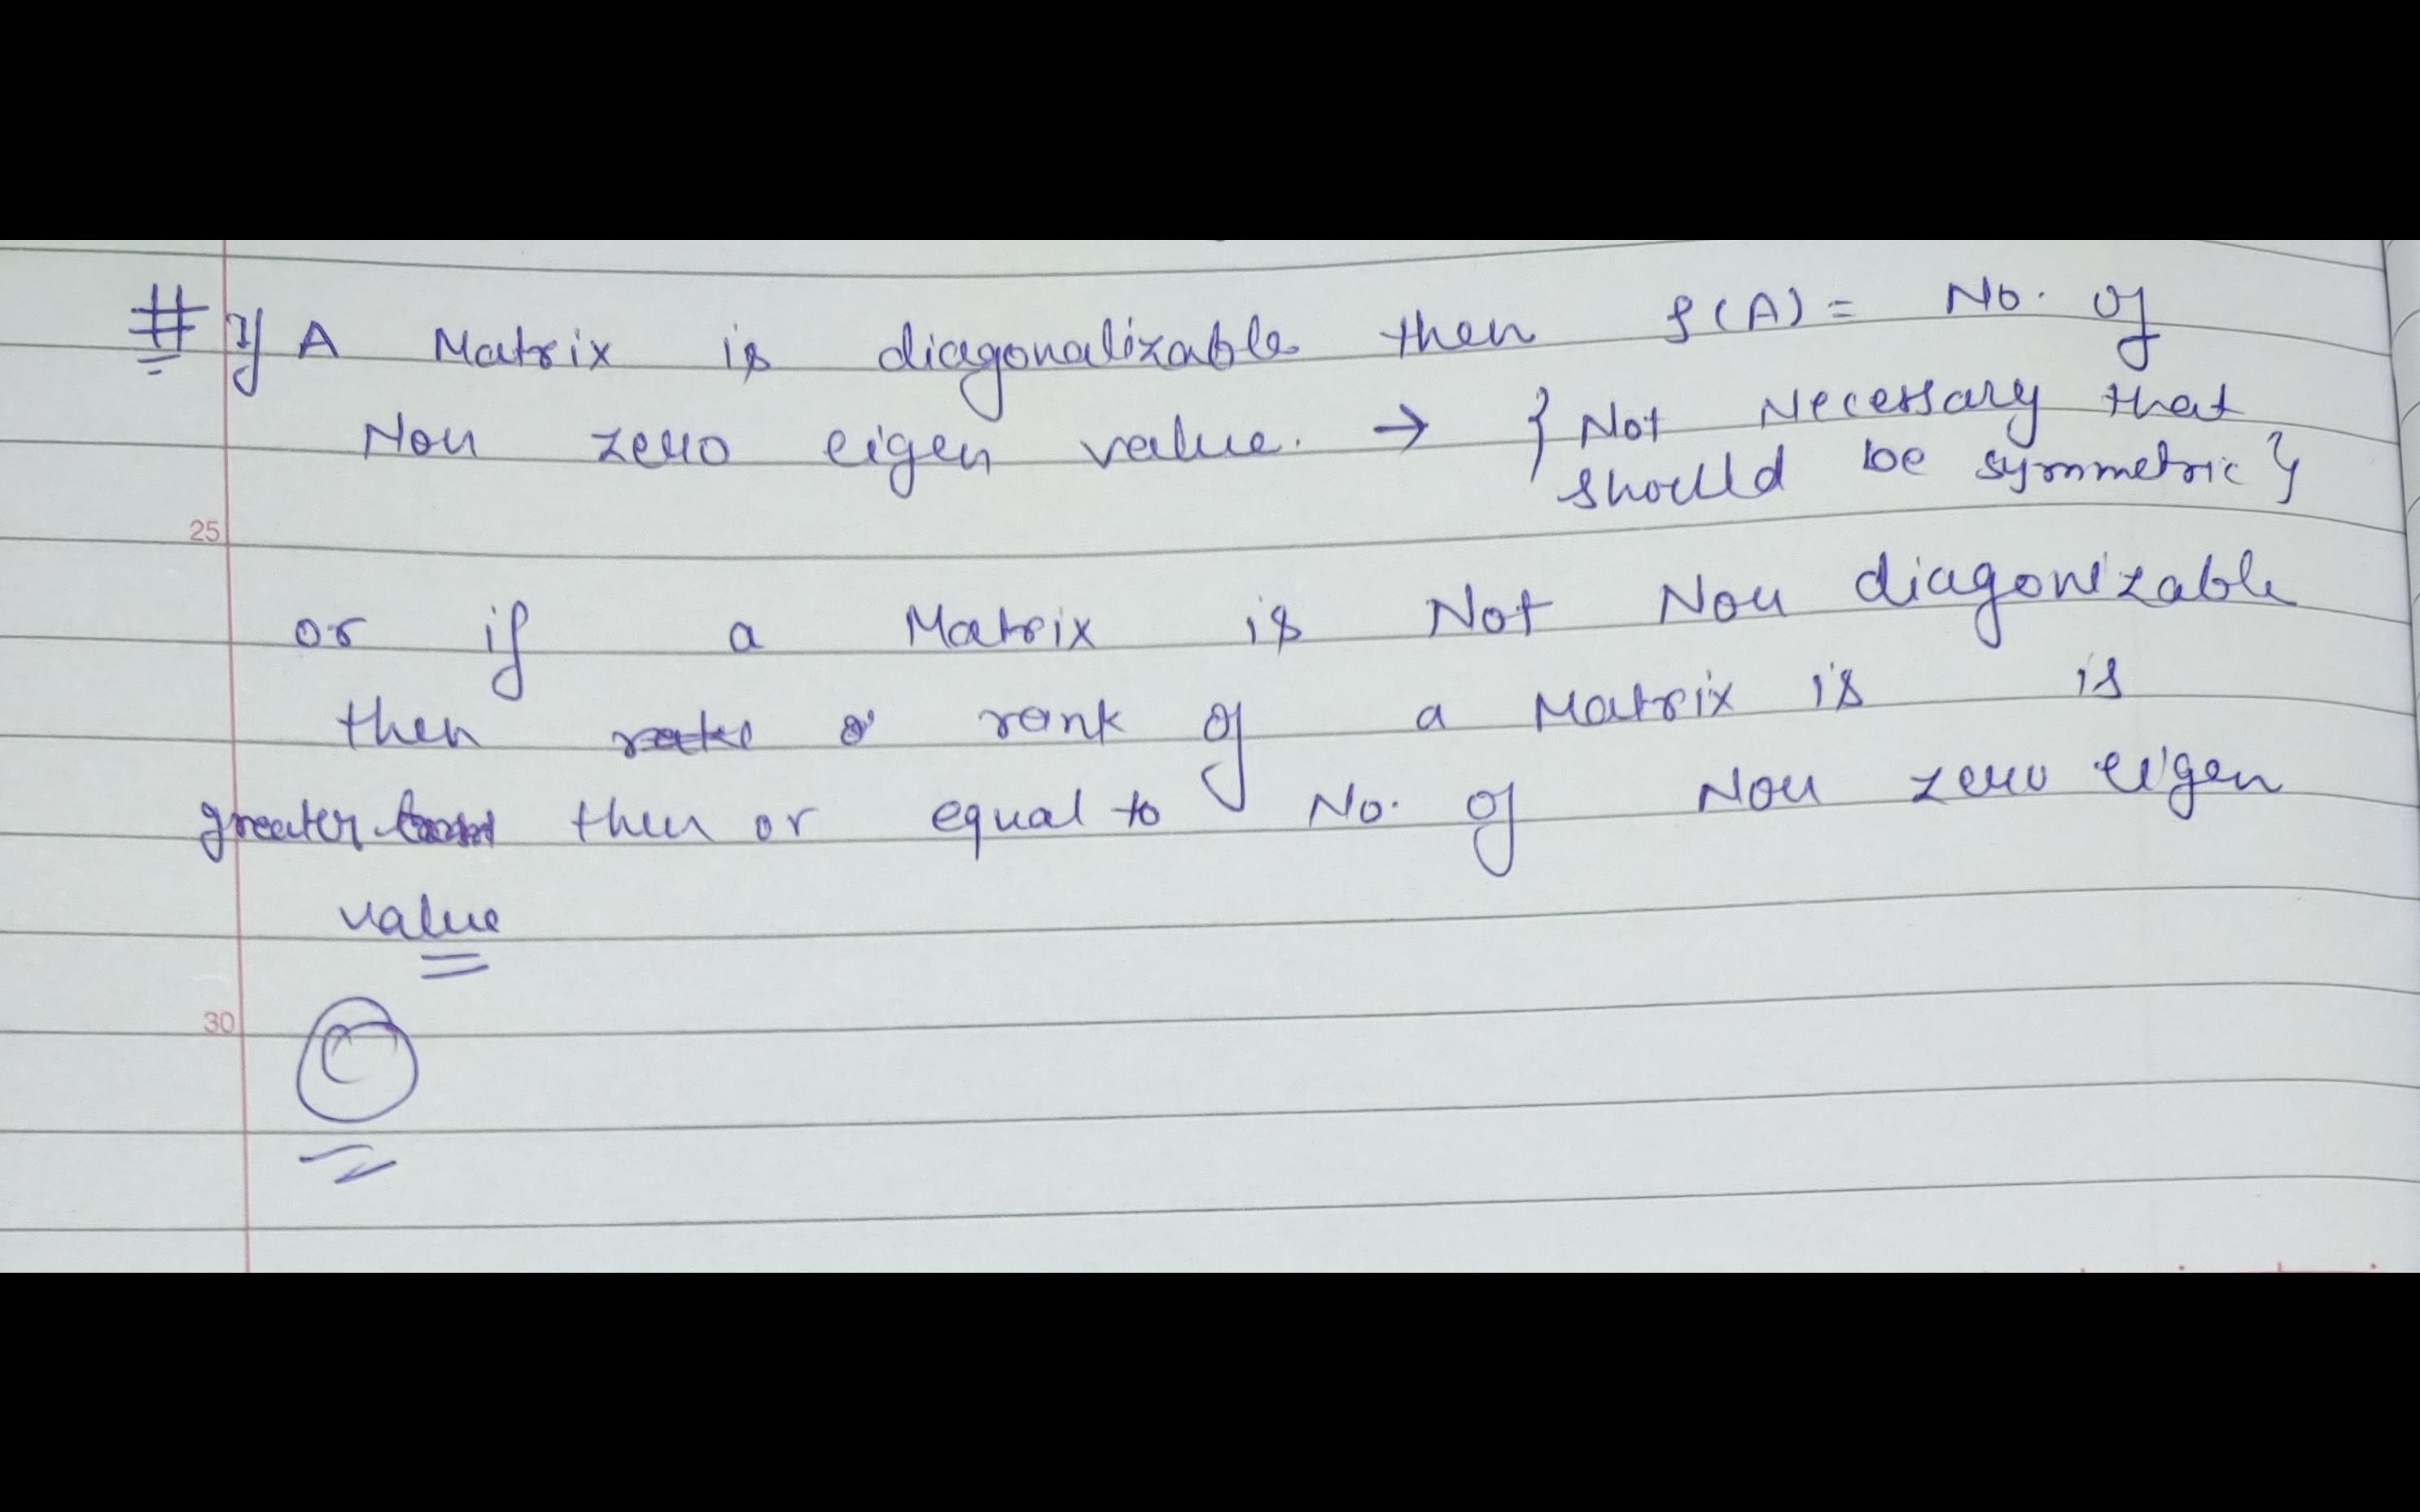 # If A Matrix is diagonalizable then ρ(A) = No. of
Non zero eigen value. → { Not Necessary that
should be symmetric }
25
or if a Matrix is Not Non diagonizable
then rank of a Matrix is is
greater then or equal to No. of Non zero eigen
value
30